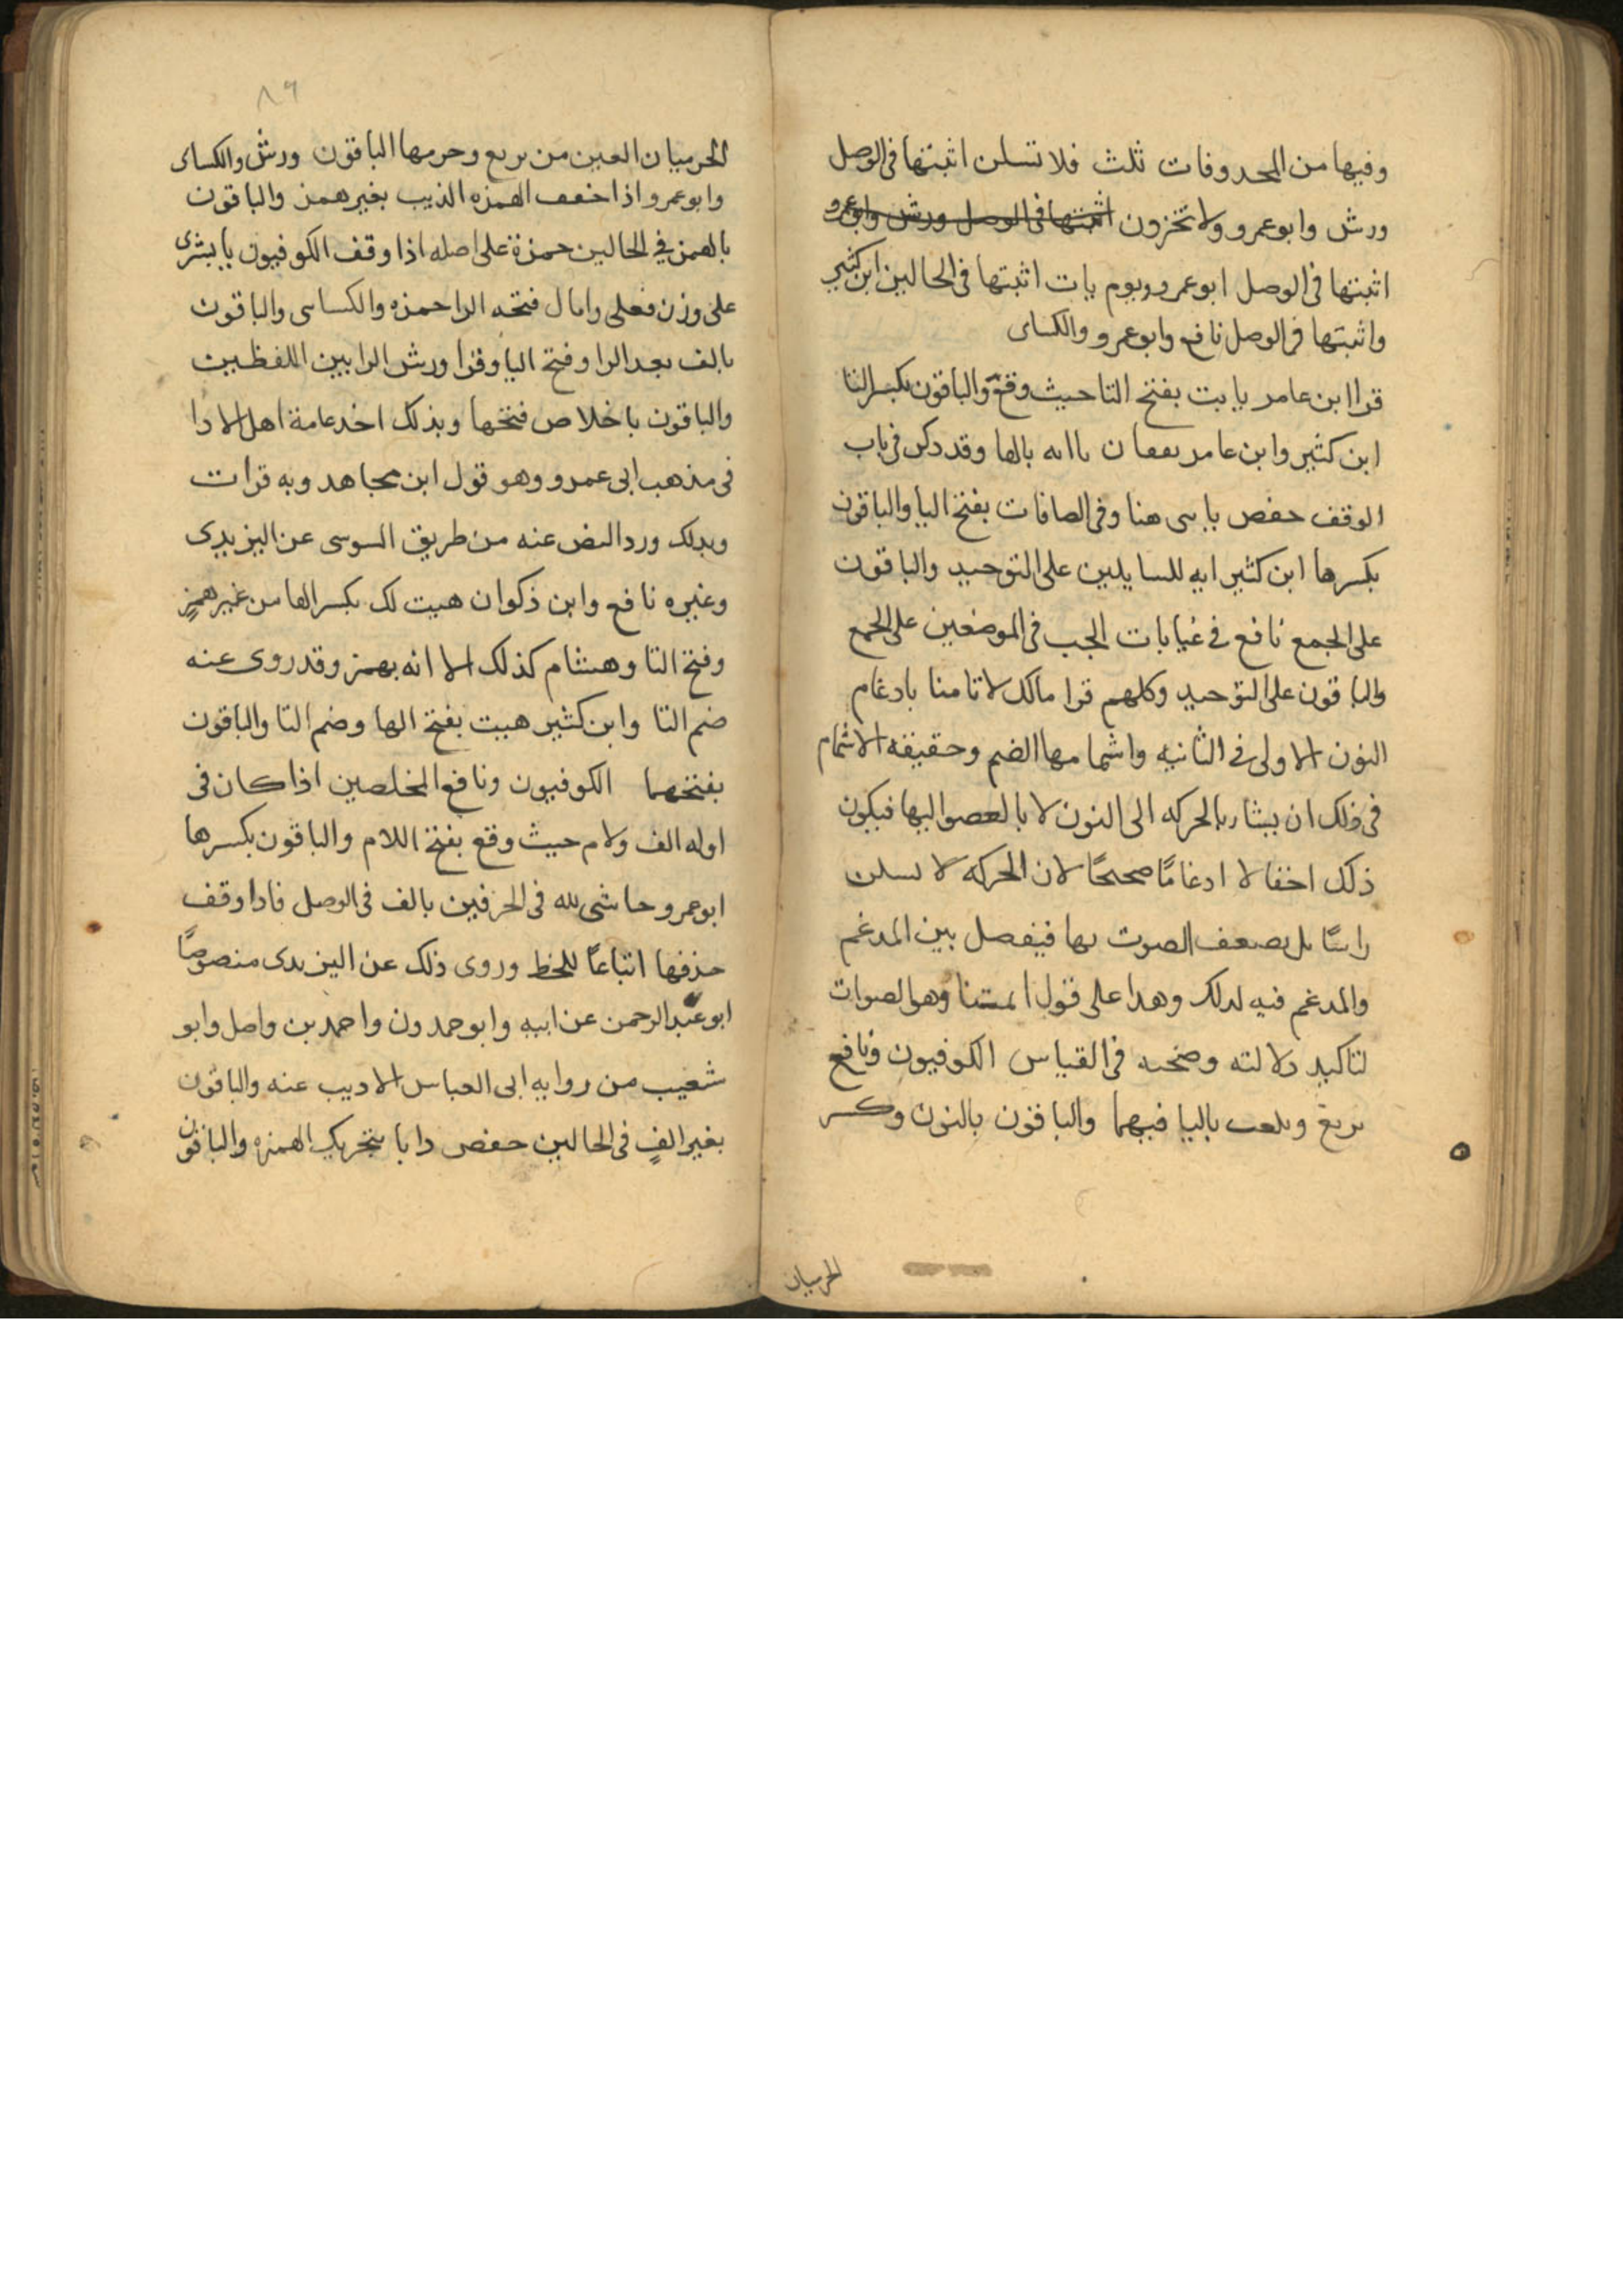 وفيها من المحدوفات ثلث فلا تسلن اثبتها فى الوصل
ورش وابو عمرو ولا تخزون اثبتها فى الوصل ورش وابو عمرو
اثبتها فى الوصل ابو عمرو ويوم يات اثبتها فى الحالين ابن كثير
واثبتها فى الوصل نافع وابو عمرو والكساى
قرا ابن عامر يابت بفتح التا حيث وقع والباقون بكسر التا
ابن كثير وابن عامر يقفان يا ابه بالها وقد دكر فى باب
الوقف حفص يابنى هنا وفى الصافات بفتح اليا والباقون
بكسرها ابن كثير ايه للسايلين على التوحيد والباقون
على الجمع نافع فى غيابات الجب فى الموضعين على الجمع
والباقون على التوحيد وكلهم قرا مالك لا تامنا بادغام
النون الاولى فى الثانيه واشمامها الضم وحقيقه الاشمام
فى ذلك ان يشار بالحركه الى النون لا بالعضو اليها فيكون
ذلك اخفا لا ادغامًا صحيحًا لان الحركه لا تسكن
راسًا بل يضعف الصوت بها فيفصل بين المدغم
والمدغم فيه لدلك وهدا على قول ايمتنا وهو الصواب
لتاكيد دلالته وصحته فى القياس الكوفيون ونافع
يرتع ويلعب باليا فيهما والباقون بالنون وكسر
الحرميان
٨٦
الحرميان العين من يرتع وجزمها الباقون ورش والكساى
وابو عمرو اذا خفف الهمزه الذيب بغير همز والباقون
بالهمز فى الحالين حمزة على اصله اذا وقف الكوفيون يا بشرى
على وزن فعلى وامال فتحه الرا حمزه والكساى والباقون
بالف بعد الرا وفتح اليا وقرا ورش الرا بين اللفظين
والباقون باخلاص فتحها وبذلك اخد عامة اهل الادا
فى مذهب ابى عمرو وهو قول ابن مجاهد وبه قرات
وبدلك ورد النص عنه من طريق السوسى عن اليزيدى
وغيره نافع وابن ذكوان هيت لك بكسر الها من غير همزٍ
وفتح التا وهشام كذلك الا انه بهمز وقد روى عنه
ضم التا وابن كثير هيت بفتح الها وضم التا والباقون
بفتحهما الكوفيون ونافع المخلصين اذا كان فى
اوله الف ولام حيث وقع بفتح اللام والباقون بكسرها
ابو عمرو حاشى لله فى الحرفين بالف فى الوصل فادا وقف
حذفها اتباعًا للخط وروى ذلك عن اليزيدى منصوصًا
ابو عبد الرحمن عن ابيه وابو حمدون واحمد بن واصل وابو
شعيب من روايه ابى العباس الاديب عنه والباقون
بغير الفٍ فى الحالين حفص دابا بتحريك الهمزه والباقون